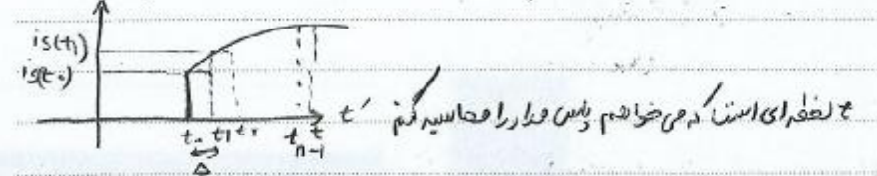 is(t₁)
is(t₀)
t₀ t₁ t₂ t_{n-1} t t'
Δ
t لحظه ای است که می خواهم پاسخ مدار را محاسبه کنم